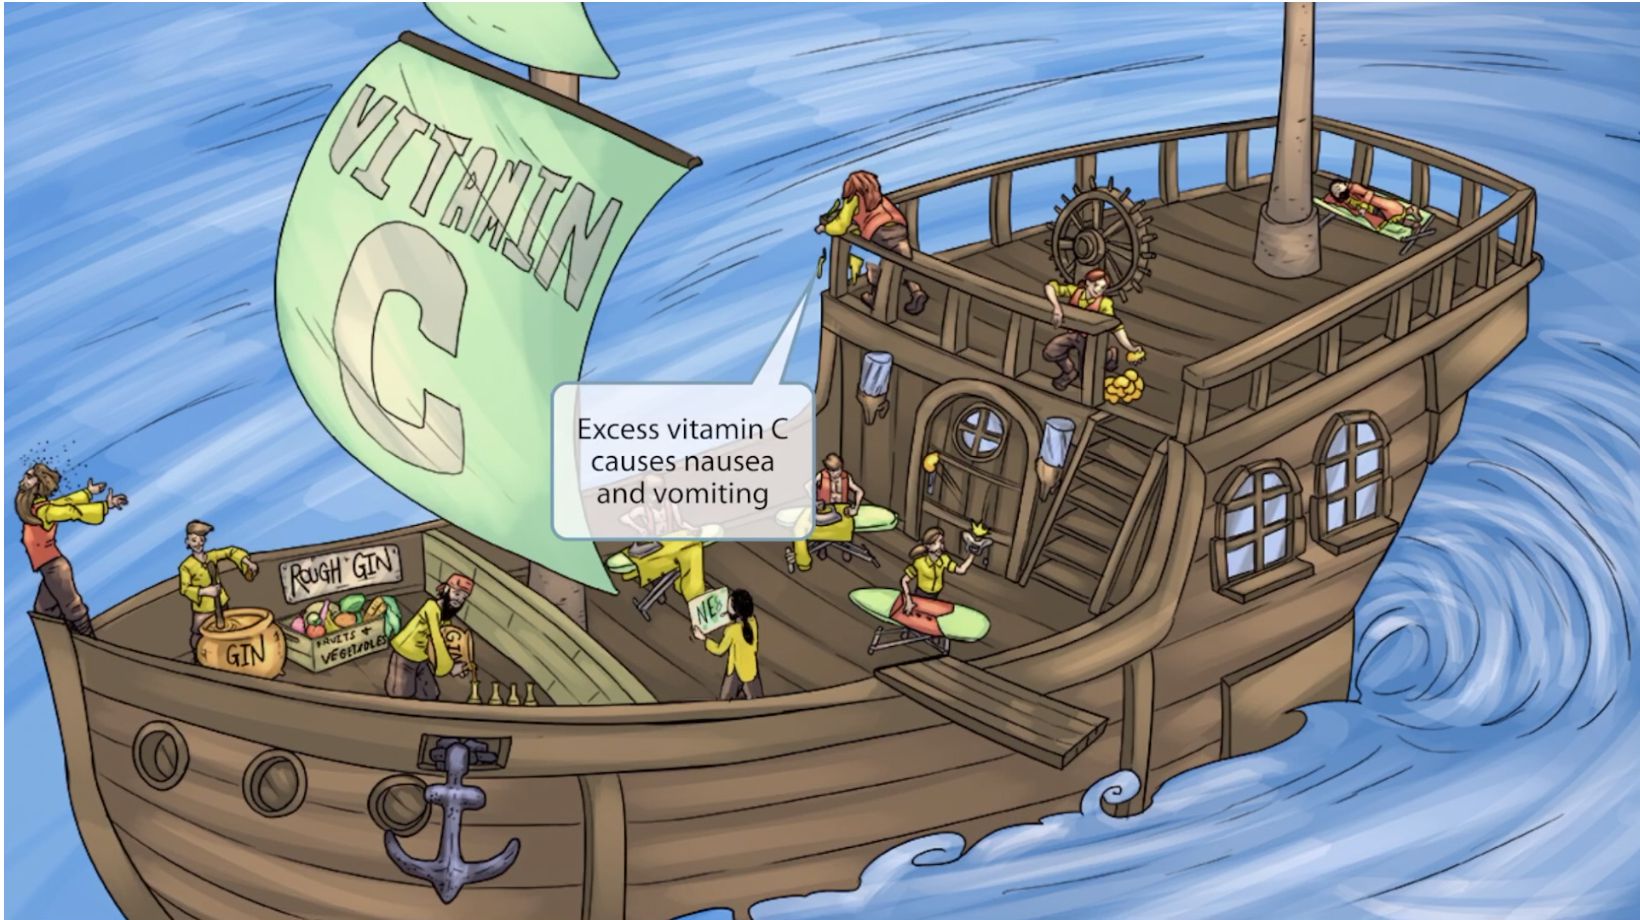 VITAMIN
C
Excess vitamin C
causes nausea
and vomiting
ROUGH GIN
GIN
FRUITS +
VEGETABLES
GIN